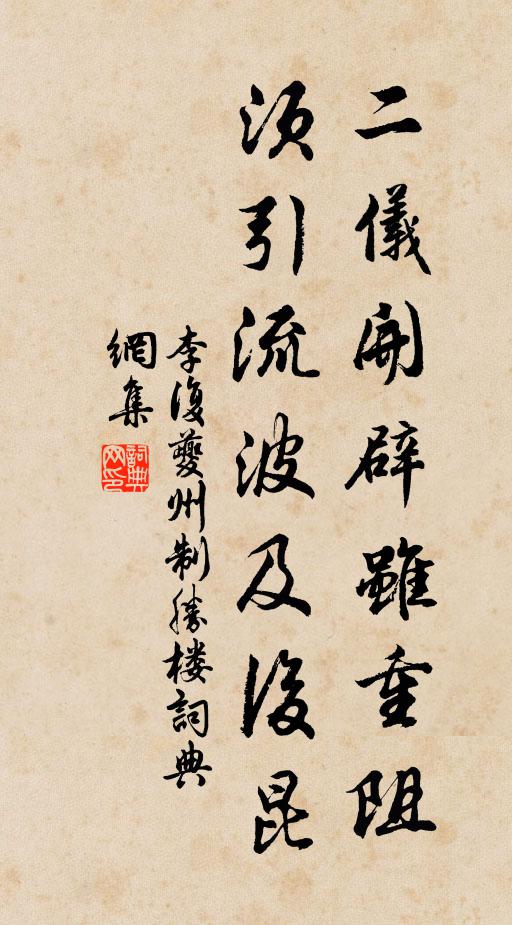 二儀開辟雖重阻
須引流波及後昆
李復夔州制勝樓詞典
網集
詞典網印